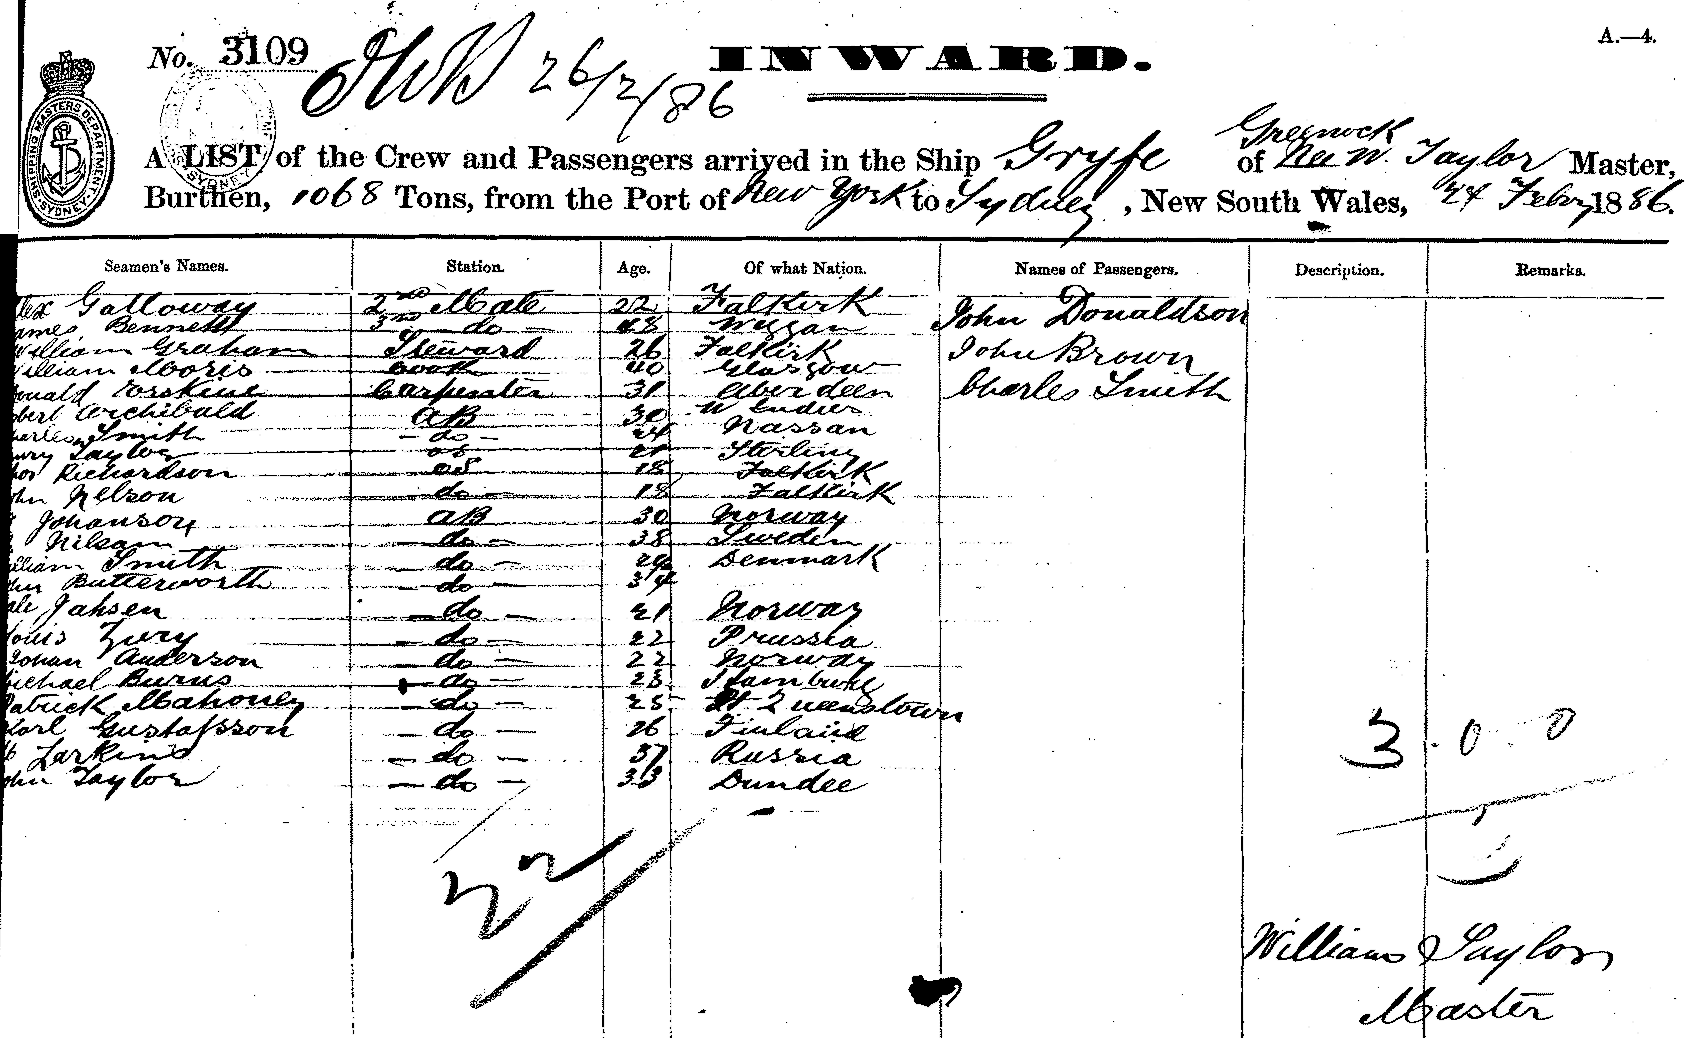 No. 3109 26/2/86 INWARD. A.—4.
SHIPPING MASTERS DEPARTMENT SYDNEY
Greenock
A LIST of the Crew and Passengers arrived in the Ship Gryfe of W. Taylor Master,
Burthen, 1068 Tons, from the Port of New York to Sydney, New South Wales, 24 Febry 1886.
Seamen's Names. Station. Age. Of what Nation. Names of Passengers. Description. Remarks.
lex Galloway 2nd Mate 22 Falkirk John Donaldson
ames Bennett 3rd do 48 Weggan
William Graham Steward 26 Falkirk John Brown
William Moris Cook 40 Glasgow
onald Erskine Carpenter 31 Aberdeen Charles Smith
obert Archibald AB 30 W Indies
harles Smith do 24 Nassau
enry Taylor OS 21 Sterling
hos Richardson OS 18 Falkirk
ohn Nelson do 18 Falkirk
Johanson AB 30 Norway
Nilsson do 38 Sweden
illiam Smith do 24 Denmark
ohn Butterworth do 34
ole Jahsen do 21 Norway
Louis Zury do 22 Prussia
Johan Anderson do 22 Norway
Michael Burns do 23 Hamburg
Patrick Mahoney do 25 Queenstown
Karl Gustafsson do 26 Finland
Larkins do 37 Russia
ohn Taylor do 33 Dundee
3.0.0
22
William Taylor
Master